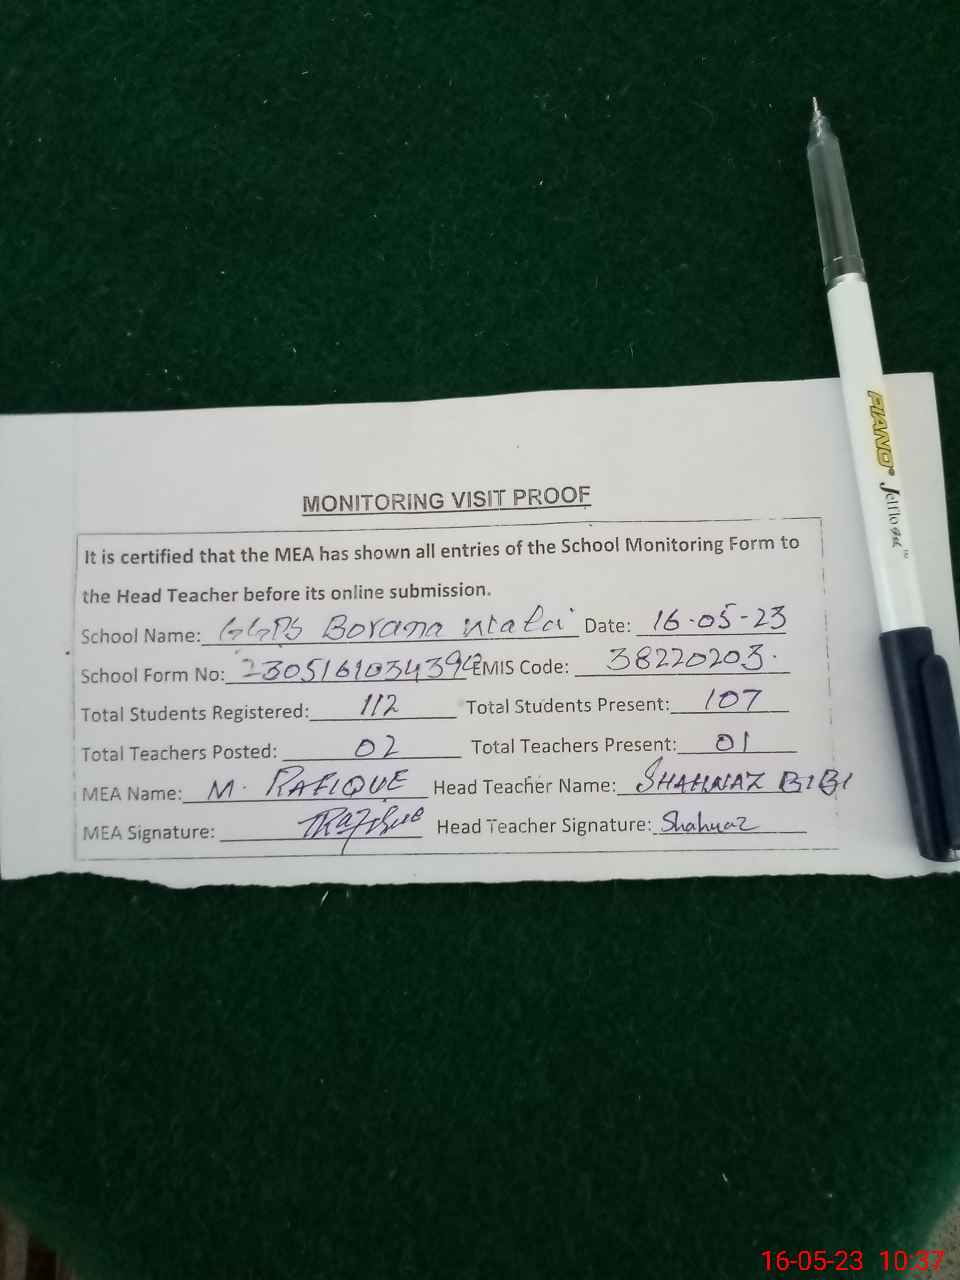 MONITORING VISIT PROOF
It is certified that the MEA has shown all entries of the School Monitoring Form to
the Head Teacher before its online submission.
School Name: GGPS Borana Date: 16-05-23
School Form No: EMIS Code: 38220203.
Total Students Registered: 112 Total Students Present: 107
Total Teachers Posted: 02 Total Teachers Present: 01
MEA Name: M. RAFIQUE Head Teacher Name: SHAHNAZ BIBI
MEA Signature: Rafique Head Teacher Signature: Shahnaz
PIANO
Jetflo gel
16-05-23 10:37